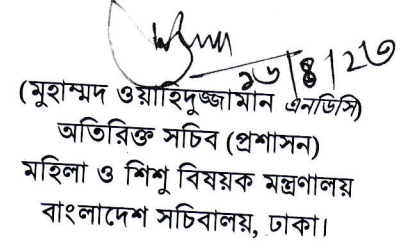 ১৬/৪/২৩
(মুহাম্মদ ওয়াহিদুজ্জামান এনডিসি)
অতিরিক্ত সচিব (প্রশাসন)
মহিলা ও শিশু বিষয়ক মন্ত্রণালয়
বাংলাদেশ সচিবালয়, ঢাকা।